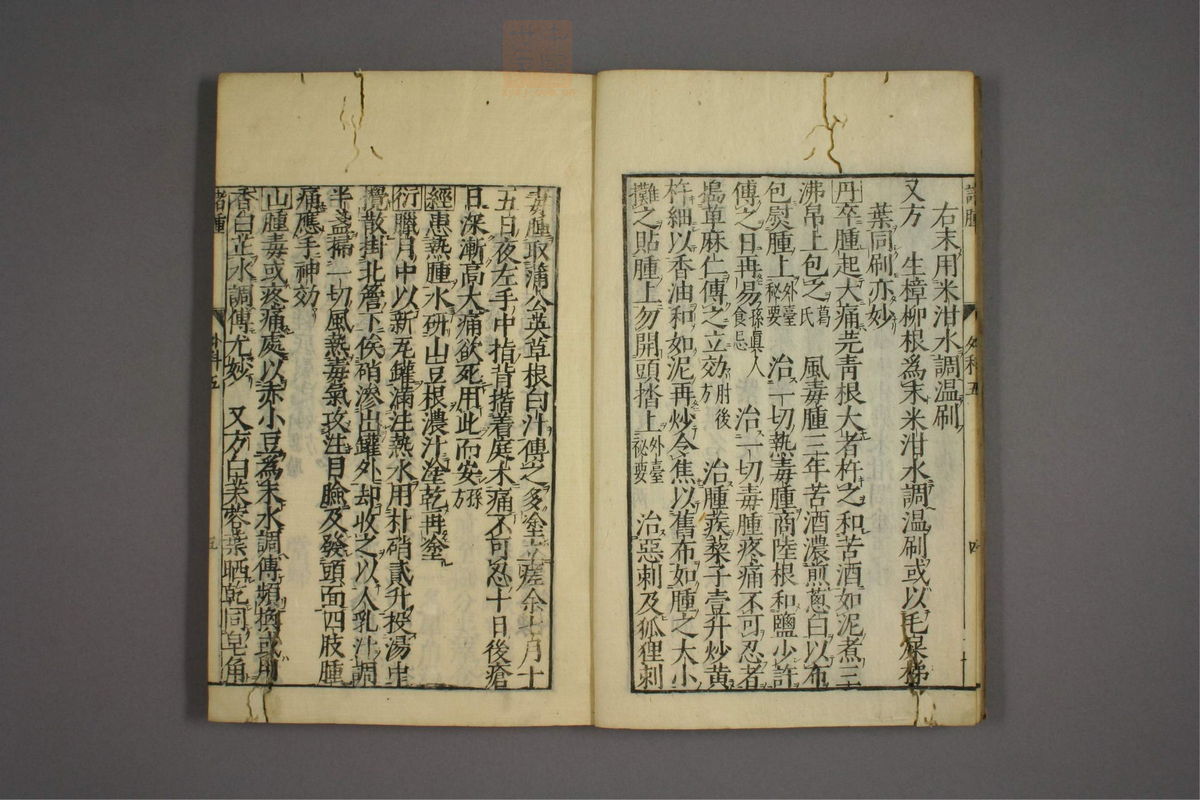 諸腫 外科五 四
右末用米泔水調温刷
又方 生樟柳根爲末米泔水調温刷或以毛
葉同刷亦妙
丹卒腫起大痛羌青根大者杵之和苦酒如泥煮三
沸吊上包之葛氏 風毒腫三年苦酒濃煎葱白以布
包熨腫上外臺秘要 治一切熱毒腫商陸根和鹽少許
傅之日再易孫眞人食忌 治一切毒腫疼痛不可忍者
搗草麻仁傅之立効肘後方 治腫蒺藜子壹升炒黄
杵細以香油和如泥再炒令焦以舊布如腫之大小
攤之貼腫上勿開頭揩上外臺秘要 治惡刺及狐狸刺
毒腫取蒲公英草根白汁傅之多塗差余七月十
五日夜左手中指背揩着庭木痛不可忍十日後瘡
日深漸高大痛欲死用此而安孫方
經患熱腫水研山豆根濃汁塗乾再塗
衍臘月中以新瓦罐滿注熱水用朴硝貳升投湯中
攪散掛北簷下俟硝滲出罐外却收之以人乳汁調
半盞掃一切風熱毒氣攻注目臉及發頭面四肢腫
痛應手神効
山腫毒或疼痛處以赤小豆為末水調傅頻換或用
香白芷水調傅尤妙 又方白芙蓉葉晒乾同皂角
諸腫 外科五 五